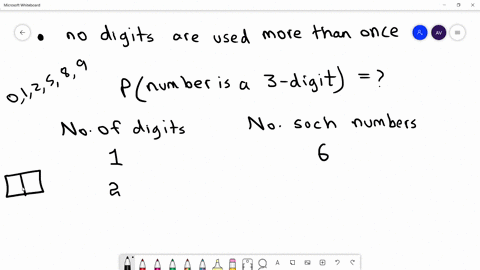 Microsoft Whiteboard
• no digits are used more than once
AV
0,1,2,5,8,9
P(number is a 3-digit) = ?
No. of digits No. soch numbers
1 6
2